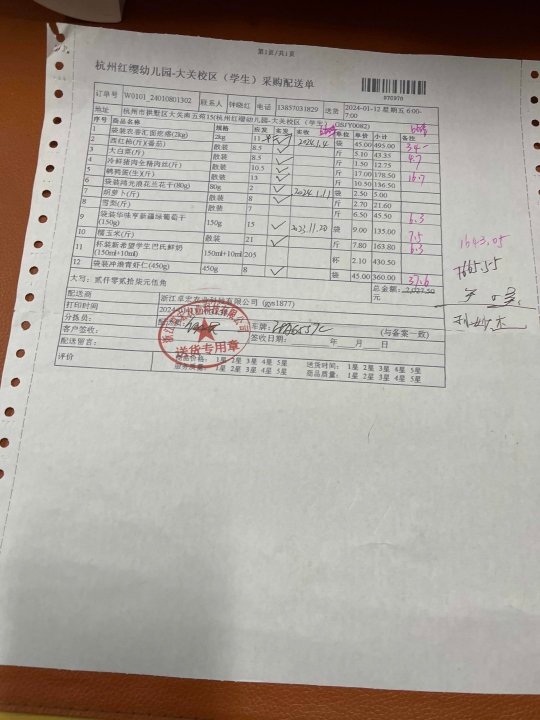 第1页/共1页
杭州红缨幼儿园-大关校区（学生）采购配送单
070970
订单号 W0101_24010801302 联系人 钟晓红 电话 13857031829 送货 2024-01-12 星期五 6:00-7:00
地址 杭州市拱墅区大关南五苑15(杭州红缨幼儿园-大关校区（学生）)(GSJY0082)
序号 商品名称 规格 应发 实发 实收 单位 单价 小计 备注
1 袋装农香汇面疙瘩(2kg) 2kg 11 2024.1.4 袋 45.00 495.00
2 西红柿(斤)(番茄) 散装 8.5 斤 5.10 43.35 34
3 大白菜(斤) 散装 8.5 斤 1.50 12.75 4.7
4 冷鲜猪肉全精肉丝(斤) 散装 10.5 斤 17.00 178.50
5 鹌鹑蛋(生)(斤) 散装 13 斤 10.50 136.50 16.7
6 袋装鸿光浪花兰花干(80g) 80g 2 2024.1.11 袋 2.50 5.00
7 胡萝卜(斤) 散装 8 斤 2.70 21.60
8 雪梨(斤) 散装 7 斤 6.50 45.50 6.3
9 袋装华味亨新疆绿葡萄干(150g) 150g 15 2023.11.20 袋 9.00 135.00
10 糯玉米(斤) 散装 21 斤 7.80 163.80 7.5
11 杯装新希望学生巴氏鲜奶(150ml+10ml) 150ml+10ml 205 杯 2.10 430.50 6.3
12 袋装冲浪青虾仁(450g) 450g 8 袋 45.00 360.00 37.6
大写：贰仟零贰拾柒元伍角 总金额：2,027.50元
1643.05
1665.55
配送商 浙江卓宏农业科技有限公司 (gys1877)
打印时间
分拣员： 配送员： 车牌： (与备案一致)
客户签收： 签收日期： 年 月 日
配送留言：
送货专用章
评价 商品价格： 1星 2星 3星 4星 5星 送货时间： 1星 2星 3星 4星 5星
服务质量： 1星 2星 3星 4星 5星 商品质量： 1星 2星 3星 4星 5星